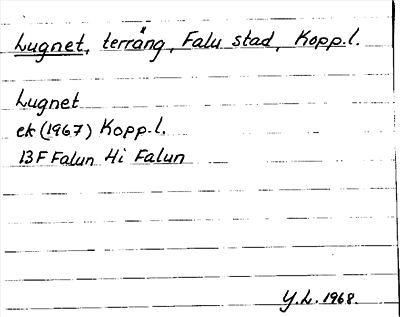 Lugnet, terräng, Falu stad, Kopp.l.
Lugnet
ek (1967) Kopp.l.
13 F Falun Hi Falun
Y.L. 1968.